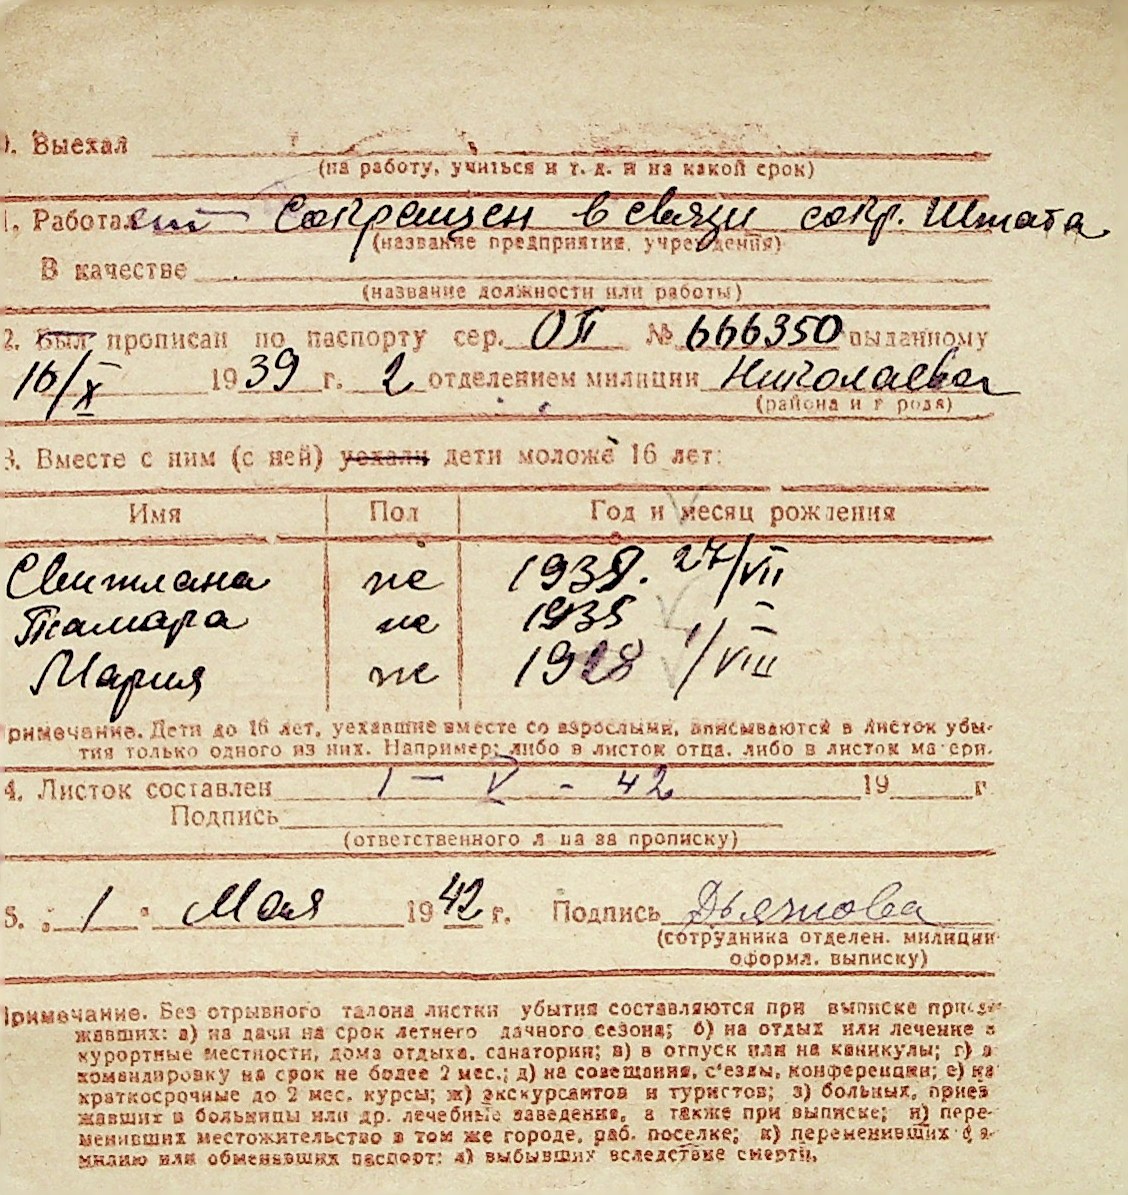 0. Выехал
(на работу, учиться и т. д. и на какой срок)
1. Работал Сокращен в связи сокр. штата
(название предприятия, учреждения)
В качестве
(название должности или работы)
2. Был прописан по паспорту сер. ОП № 666350 выданному
16/X 1939 г. 2 отделением милиции Николаева
(района и города)
3. Вместе с ним (с ней) уехали дети моложе 16 лет:
Имя Пол Год и месяц рождения
Свитлана ж 1938. 27/VII
Тамара ж 1935
Мария ж 1928 1/VIII
Примечание. Дети до 16 лет, уехавшие вместе со взрослыми, вписываются в листок убы-
тия только одного из них. Например: либо в листок отца, либо в листок матери.
4. Листок составлен 1 — V - 42 19 г
Подпись
(ответственного лица за прописку)
5. „ 1 " Мая 1942 г. Подпись Дьячкова
(сотрудника отделен. милиции
оформл. выписку)
Примечание. Без отрывного талона листки убытия составляются при выписке приез-
жавших: а) на дачи на срок летнего дачного сезона; б) на отдых или лечение в
курортные местности, дома отдыха, санатории; в) в отпуск или на каникулы; г) в
командировку на срок не более 2 мес.; д) на совещания, с'езды, конференции; е) на
краткосрочные до 2 мес. курсы; ж) экскурсантов и туристов; з) больных, приез
жавших в больницы или др. лечебные заведения, а также при выписке; и) пере-
менивших местожительство в том же городе, раб. поселке; к) переменивших фа-
милию или обменявших паспорт; л) выбывших вследствие смерти.